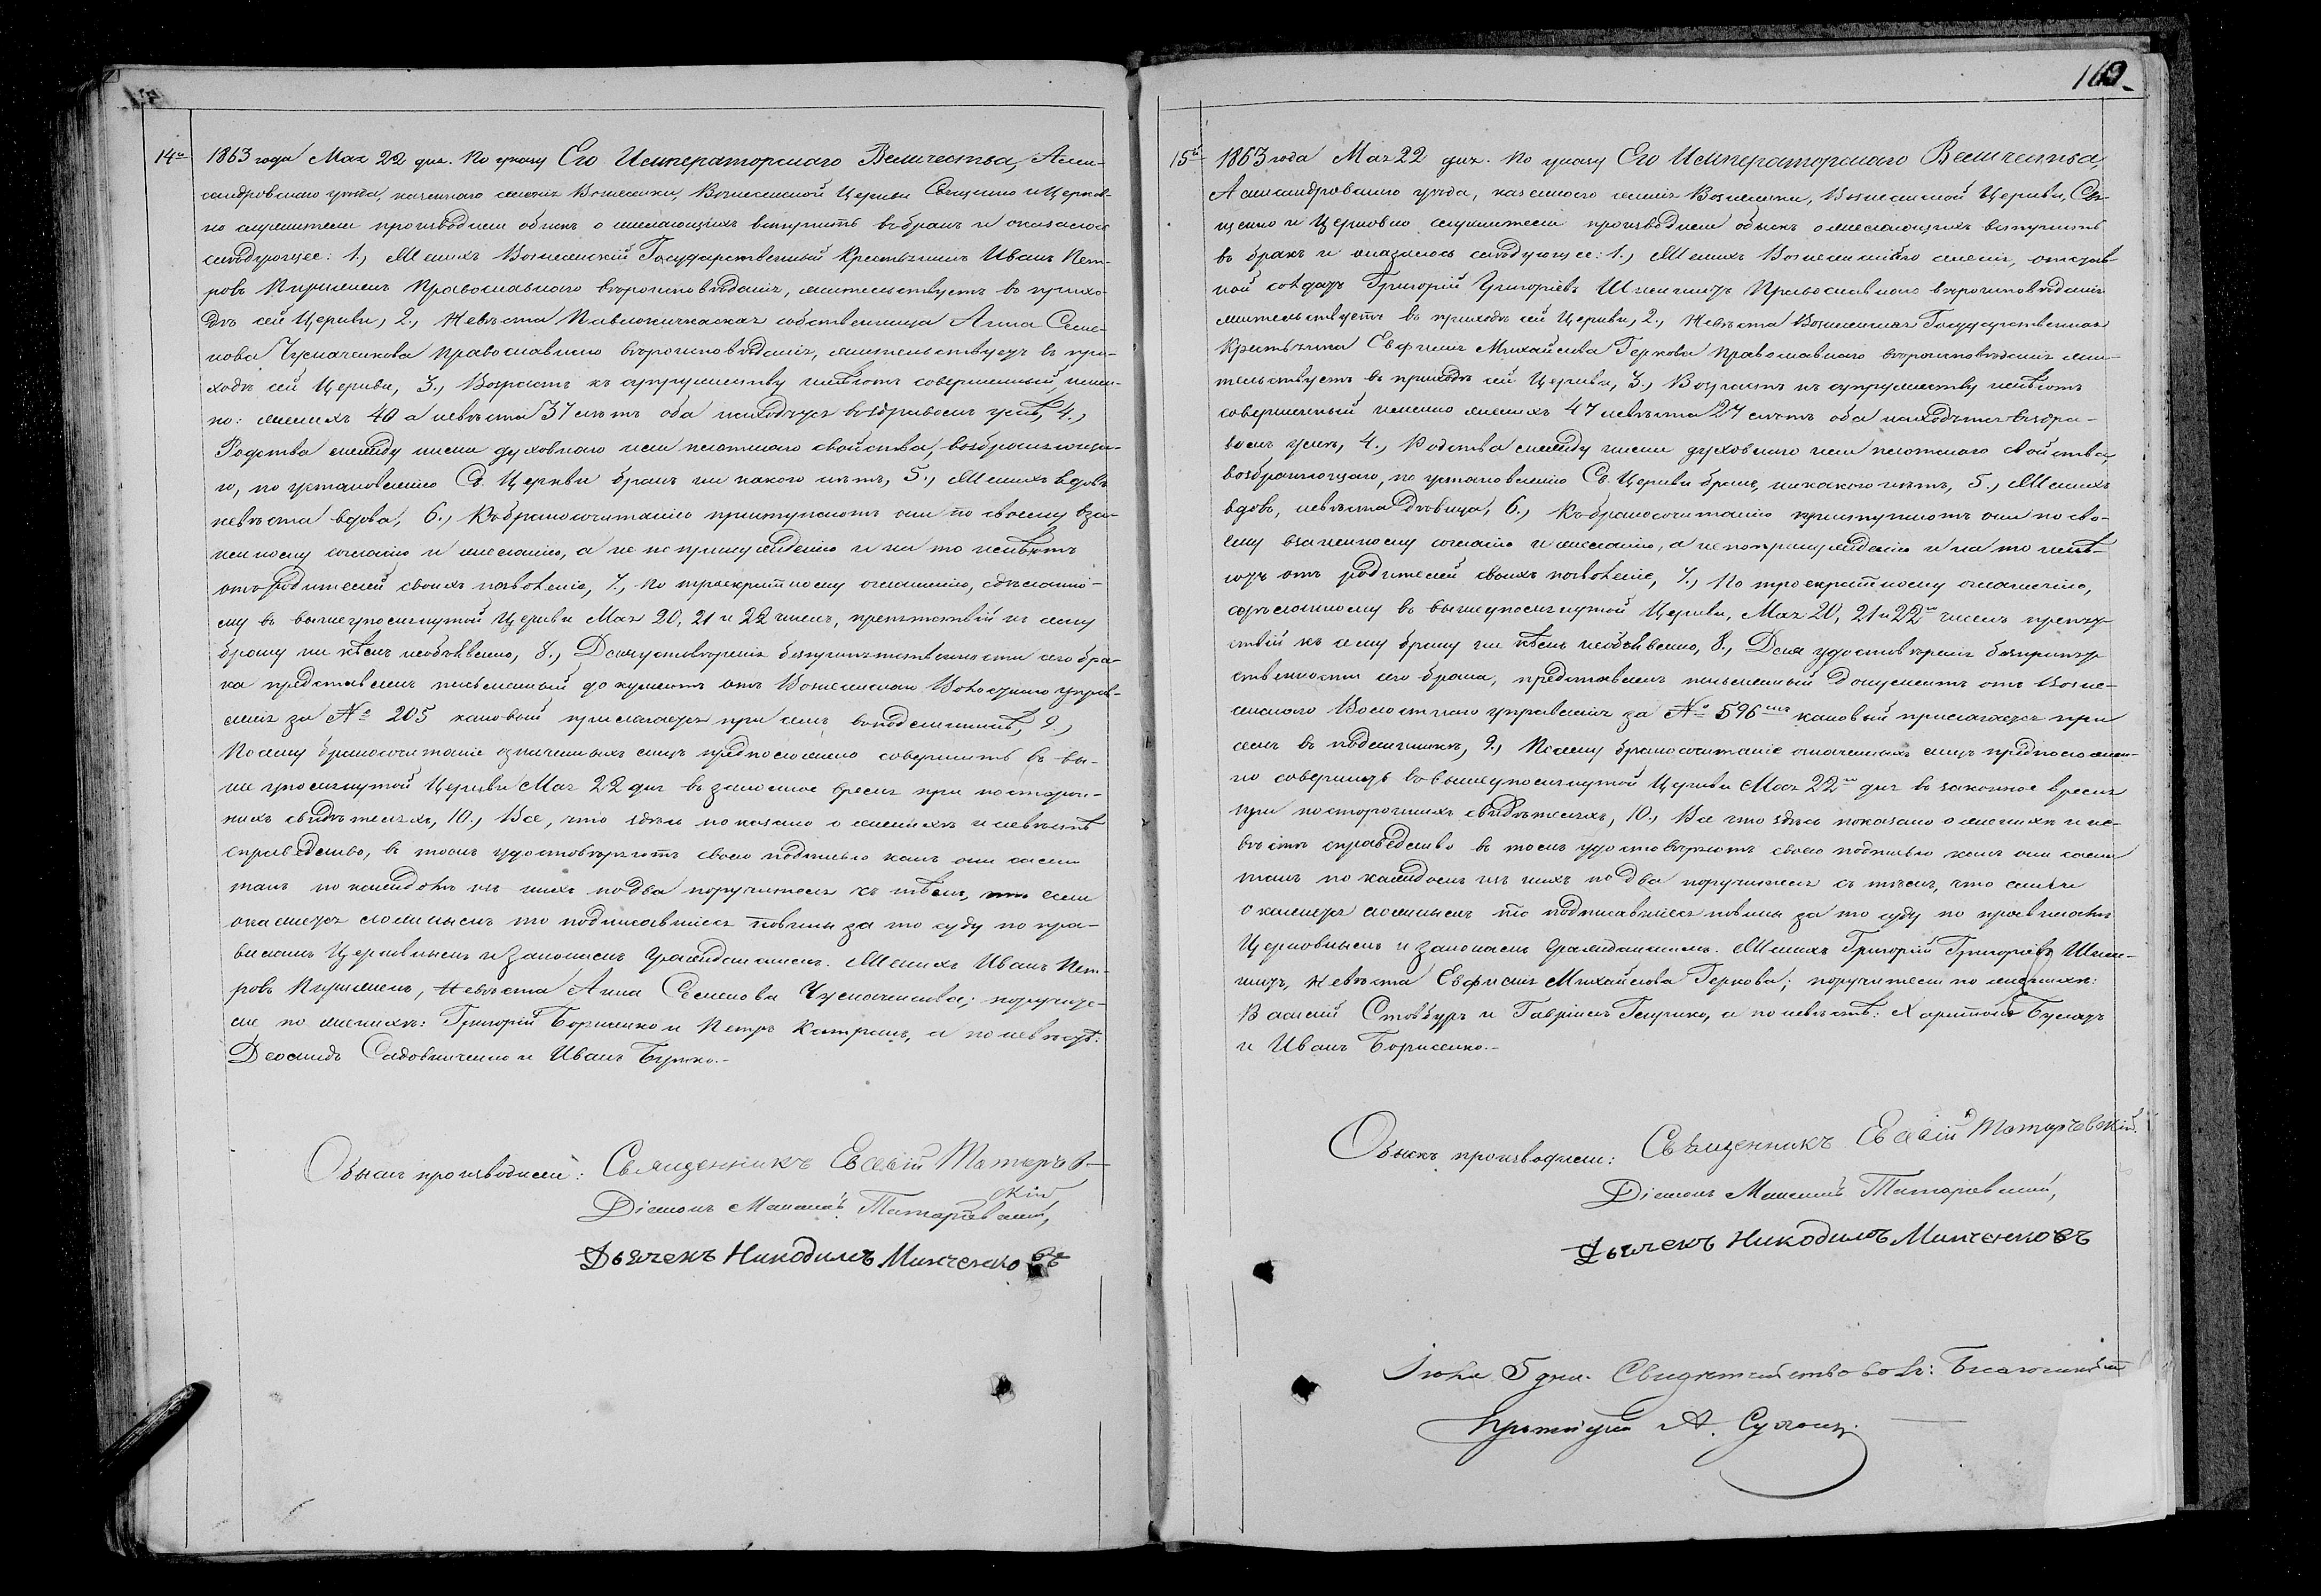 14й 1863 года Мая 22 дня. По указу Его Императорскаго Величества, Алек-
сандровскаго уѣзда, казеннаго селенія Вознесенки, Вознесенской Церкви Священно и Церков-
но служители производили обыскъ о желающихъ вступить въ бракъ и оказалось
слѣдующее: 1., Женихъ Вознесенскій Государственный Крестьянинъ Иванъ Пет-
ровъ Православнаго вѣроисповѣданія, жительствуетъ въ прихо-
дѣ сей Церкви, 2., Невѣста Павлокичкаская собственница Анна Семе-
нова Чумаченкова Православнаго вѣроисповѣданія, жительствуетъ въ при-
ходѣ сей Церкви, 3., Возрастъ къ супружеству имѣютъ совершенный, имен-
но: женихъ 40 а невѣста 37 лѣтъ оба находятся въ здравомъ умѣ, 4.,
Родства между ними духовнаго или плотскаго свойства, возбраняюща-
го, по установленію Св. Церкви бракъ ни какого нѣтъ, 5., Женихъ вдовъ
невѣста вдова, 6., Къ бракосочитанію приступаютъ они по своему вза-
имному согласію и желанію, а не по принужденію и на то имѣютъ
отъ родителей своихъ позволеніе, 7., По троекратному оглашенію, сдѣланно-
му въ вышеупомянутой Церкви Мая 20, 21 и 22 чиселъ, препятствій къ сему
браку ни кѣмъ необъявлено, 8., Для удостовѣренія безпрепятственности сего бра-
ка представленъ письменный документъ отъ Вознесенскаго Волостнаго управ-
ленія за № 205 каковый прилагается при семъ въ подлинникѣ, 9.,
По сему бракосочитаніе означенныхъ лицъ предположено совершить въ вы-
ше упомянутой Церкви Мая 22 дня въ законное время при посторон-
нихъ свидѣтеляхъ, 10., Все, что здѣсь показано о женихѣ и невѣстѣ
справедливо, въ томъ удостовѣряютъ своею подписью какъ они сами
такъ по каждомъ изъ нихъ по два поручителя съ тѣмъ, что если
окажется ложнымъ то подписавшіеся повинны за то суду по пра-
виламъ Церковнымъ и Законамъ Гражданскимъ. Женихъ Иванъ Пет-
ровъ Невѣста Анна Семенова Чумаченкова; поручите-
ли по женихѣ: Григорій Борисенко и Петръ Катранъ, а по невѣстѣ:
Леонидъ Садовниченко и Иванъ Бутко.-
Обыскъ производили: Священникъ Евсевій Татарев-
скій
Діаконъ Татаревскій,
Дьячекъ Никодимъ Минченковъ
15й 1863 года Мая 22 дня. По указу Его Императорскаго Величества
Александровскаго уѣзда, казеннаго селенія Вознесенки, Вознесенской Церкви, Свя-
щенно и Церковно служители производили обыскъ о желающихъ вступить
въ бракъ и оказалось слѣдующее: 1., Женихъ Вознесенскаго селенія, отстав-
ной солдатъ Григорій Григорьевъ Православнаго вѣроисповѣданія
жительствуетъ въ приходѣ сей Церкви, 2., Невѣста Вознесенская Государственная
Крестьянка Евфимія Михайлова Геркова Православнаго вѣроисповѣданія жи-
тельствуетъ въ приходѣ сей Церкви, 3., Возрастъ къ супружеству имѣютъ
совершенный именно женихъ 47 невѣста 27 лѣтъ оба находятся въ здра-
вомъ умѣ, 4., Родства между ними духовнаго или плотскаго свойства,
возбраняющаго, по установленію Св. Церкви бракъ, никакого нѣтъ, 5., Женихъ
вдовъ, невѣста дѣвица, 6., Къ бракосочитанію приступаютъ они по сво-
ему взаимному согласію и желанію, а не по принужденію и на то имѣ-
ютъ отъ родителей своихъ позволеніе, 7., По троекратному оглашенію,
сдѣланному въ вышеупомянутой Церкви, Мая 20, 21 и 22го чиселъ препят-
ствій къ сему браку ни кѣмъ необъявлено, 8., Для удостовѣренія безпрепят-
ственности сего брака, представленъ письменный документъ отъ Возне-
сенскаго Волостнаго управленія за № 596мъ каковый прилагается при
семъ въ подлинникѣ, 9., По сему бракосочитаніе означенныхъ лицъ предположен-
но совершить въ вышеупомянутой Церкви Мая 22го дня въ законное время
при постороннихъ свидѣтеляхъ, 10., Все что здѣсь показано о женихѣ и не-
вѣстѣ справедливо въ томъ удостовѣряютъ своею подписью какъ они сами
такъ по каждомъ изъ нихъ по два поручителя съ тѣмъ, что если
окажется ложнымъ то подписавшіеся повинны за то суду по правиламъ
Церковнымъ и законамъ Гражданскимъ. Женихъ Григорій Григорьевъ
Невѣста Евфимія Михайлова Геркова; поручители по женихѣ:
Василій Стовбуръ и Гавріилъ а по невѣстѣ: Харитонъ
и Иванъ Борисенко.-
Обыскъ производили: Священникъ Евсевій Татаревскій.
Діаконъ Татаревскій,
Дьячекъ Никодимъ Минченковъ
Іюля 5 дня. Свидѣтельствовалъ: Благочинный
Протоіерей А.